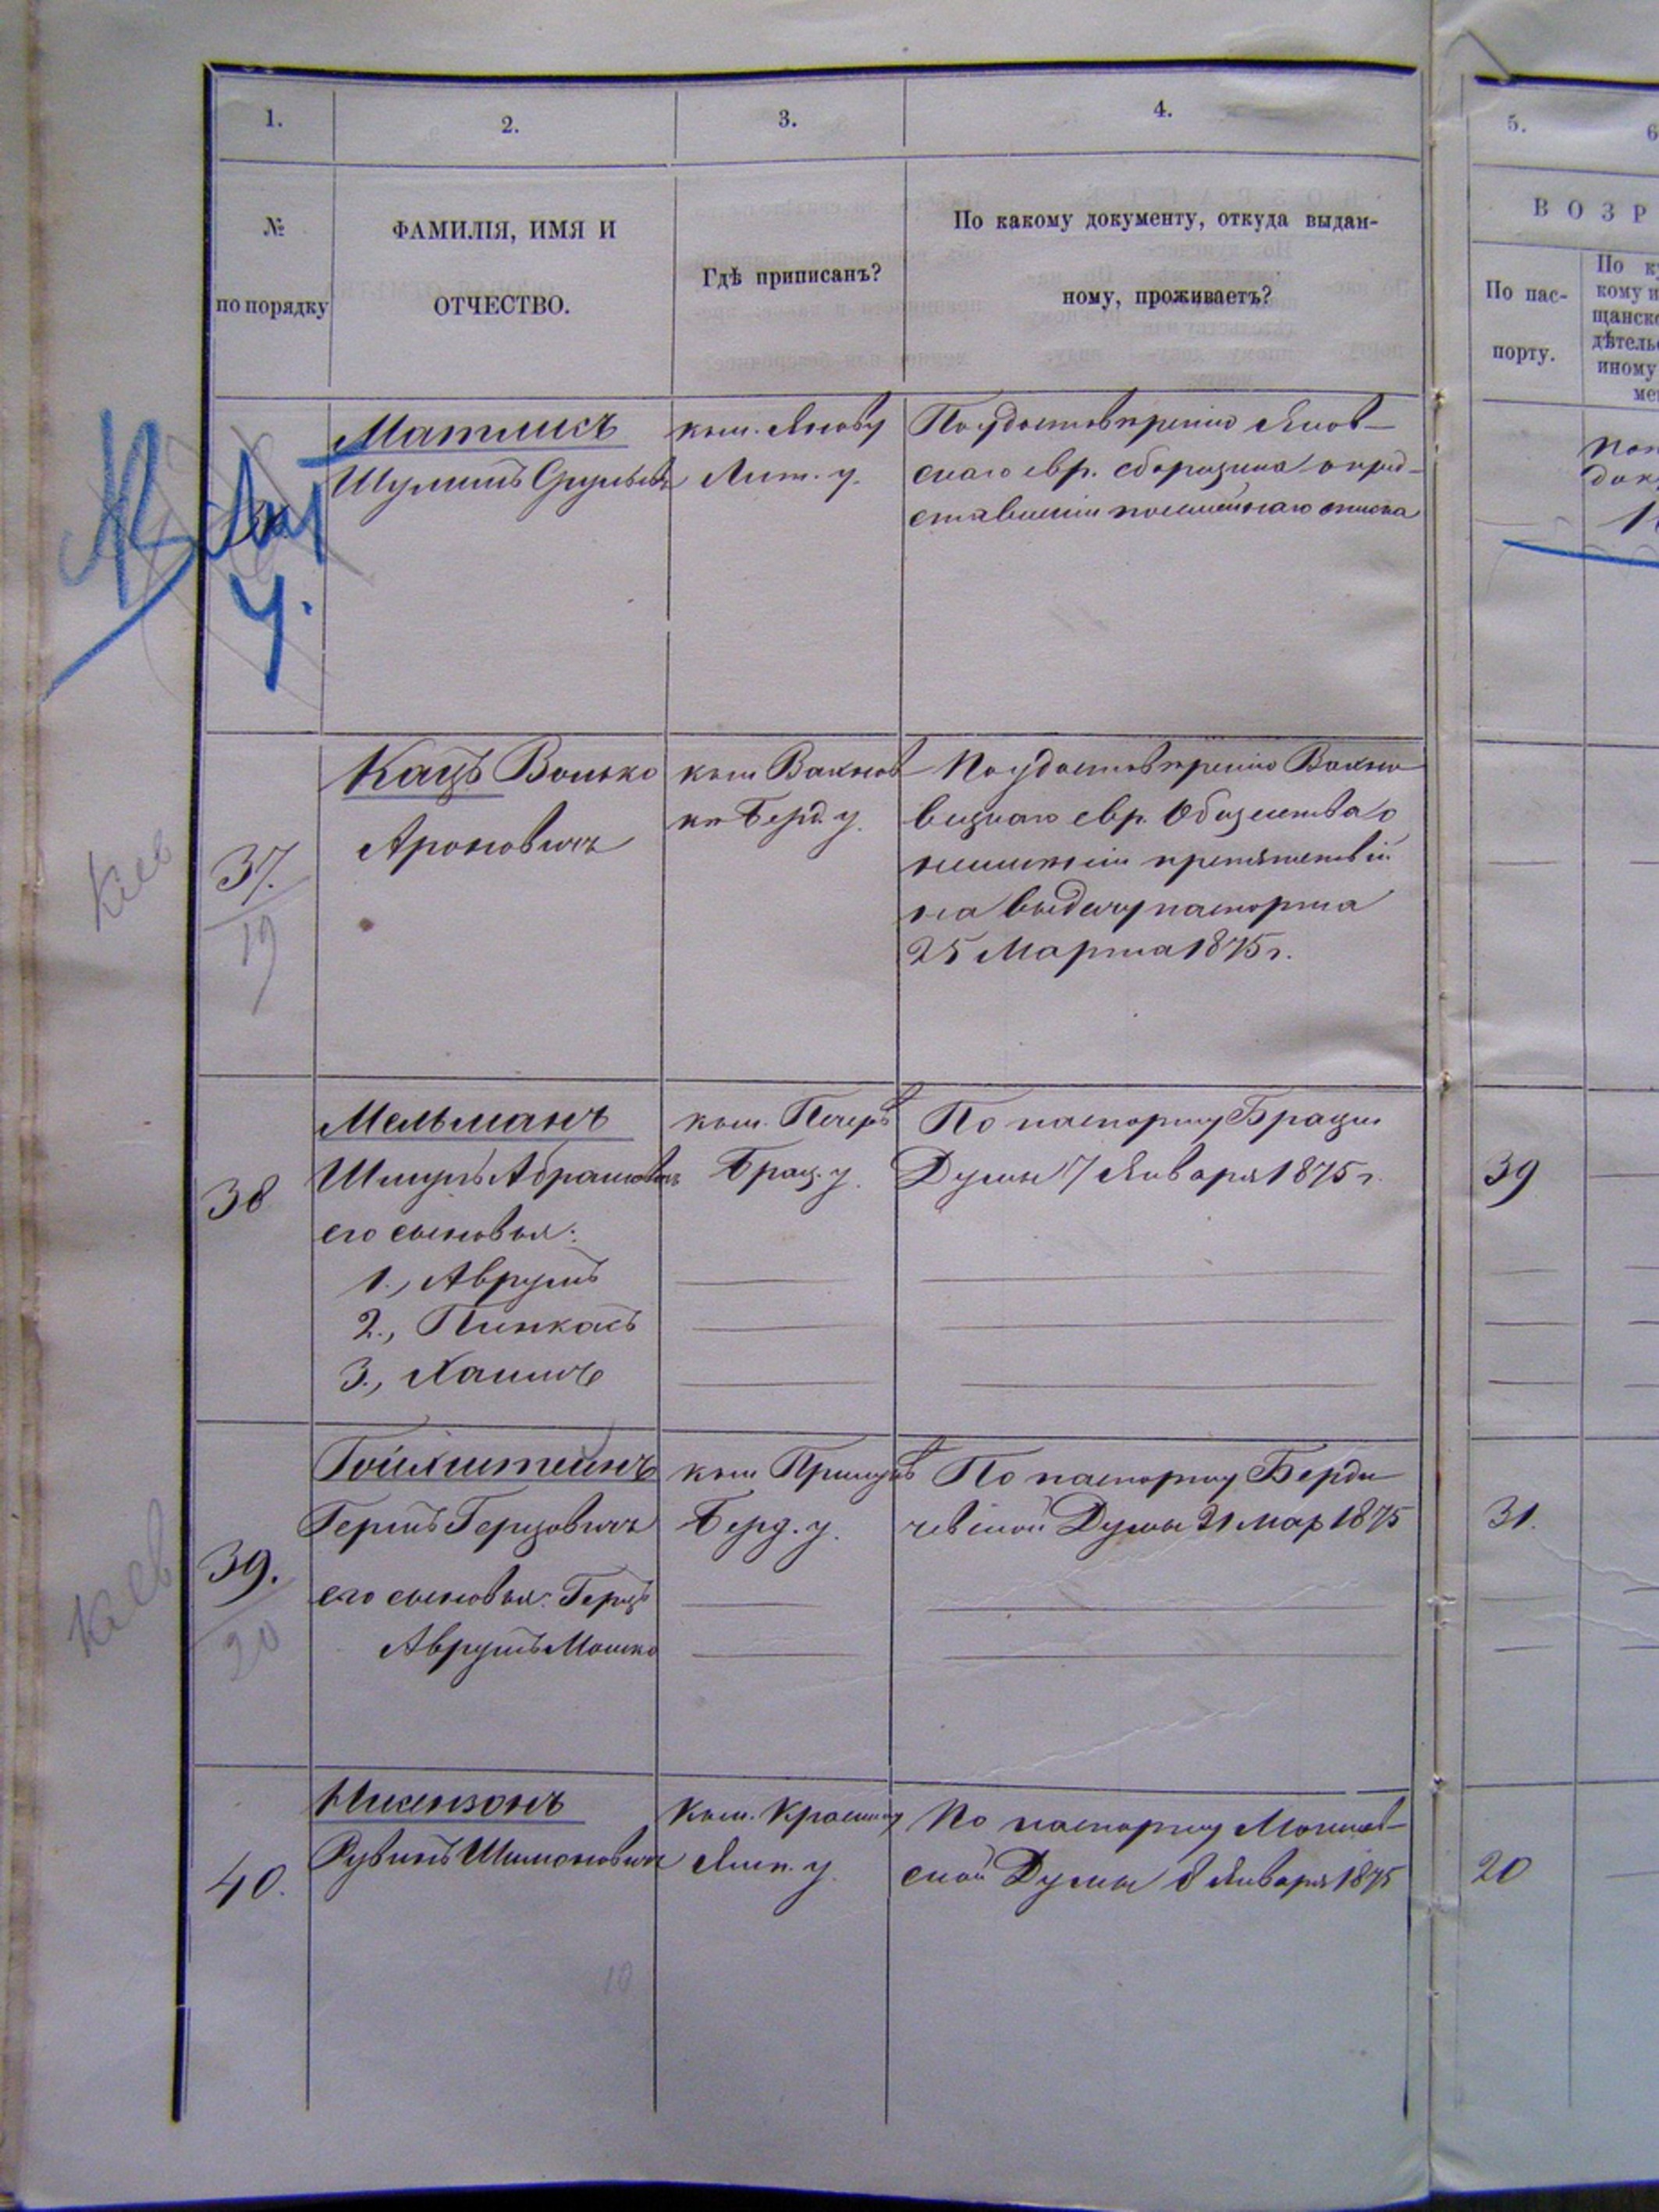 1.
2.
3.
4.
5.
6
№
по порядку
ФАМИЛІЯ, ИМЯ И
ОТЧЕСТВО.
Гдѣ приписанъ?
По какому документу, откуда выдан-
ному, проживаетъ?
ВОЗР
По пас-
порту.
По к
кому и
щанск
дѣтель
иному
ме
Матлисъ
къ м. Янову
Лит. у.
По удостовѣренію Янов-
скаго евр. сборщика о пред-
ставленіи посемейнаго списка
Лит
у.
37.
19
Кіев
Кацъ Волько
Ароновичъ
къ м Вахнов
кѣ Берд. у.
По удостовѣренію Вахно
вецкаго евр. Общества о
неимѣніи препятствій
на выдачу паспорта
25 Марта 1875 г.
38
Мельманъ
Шмуль Абрамовичъ
его сыновья:
1., Аврумъ
2., Пинкасъ
3., Хаимъ
къ м. Печеръ
Брац. у.
По паспорту Брацл
Думы 7 Января 1875 г.
39
39.
20
Кіев
Гойхштейнъ
Герцовичъ
его сыновья: Герцъ
Аврумъ Мошко
къ м
Берд. у.
По паспорту Берди
чевской Думы 21 Мар 1875
31.
40.
Рувинъ Шимоновичъ
къ м.
Лип. у.
По паспорту
ской Думы 8 Января 1875
20
10